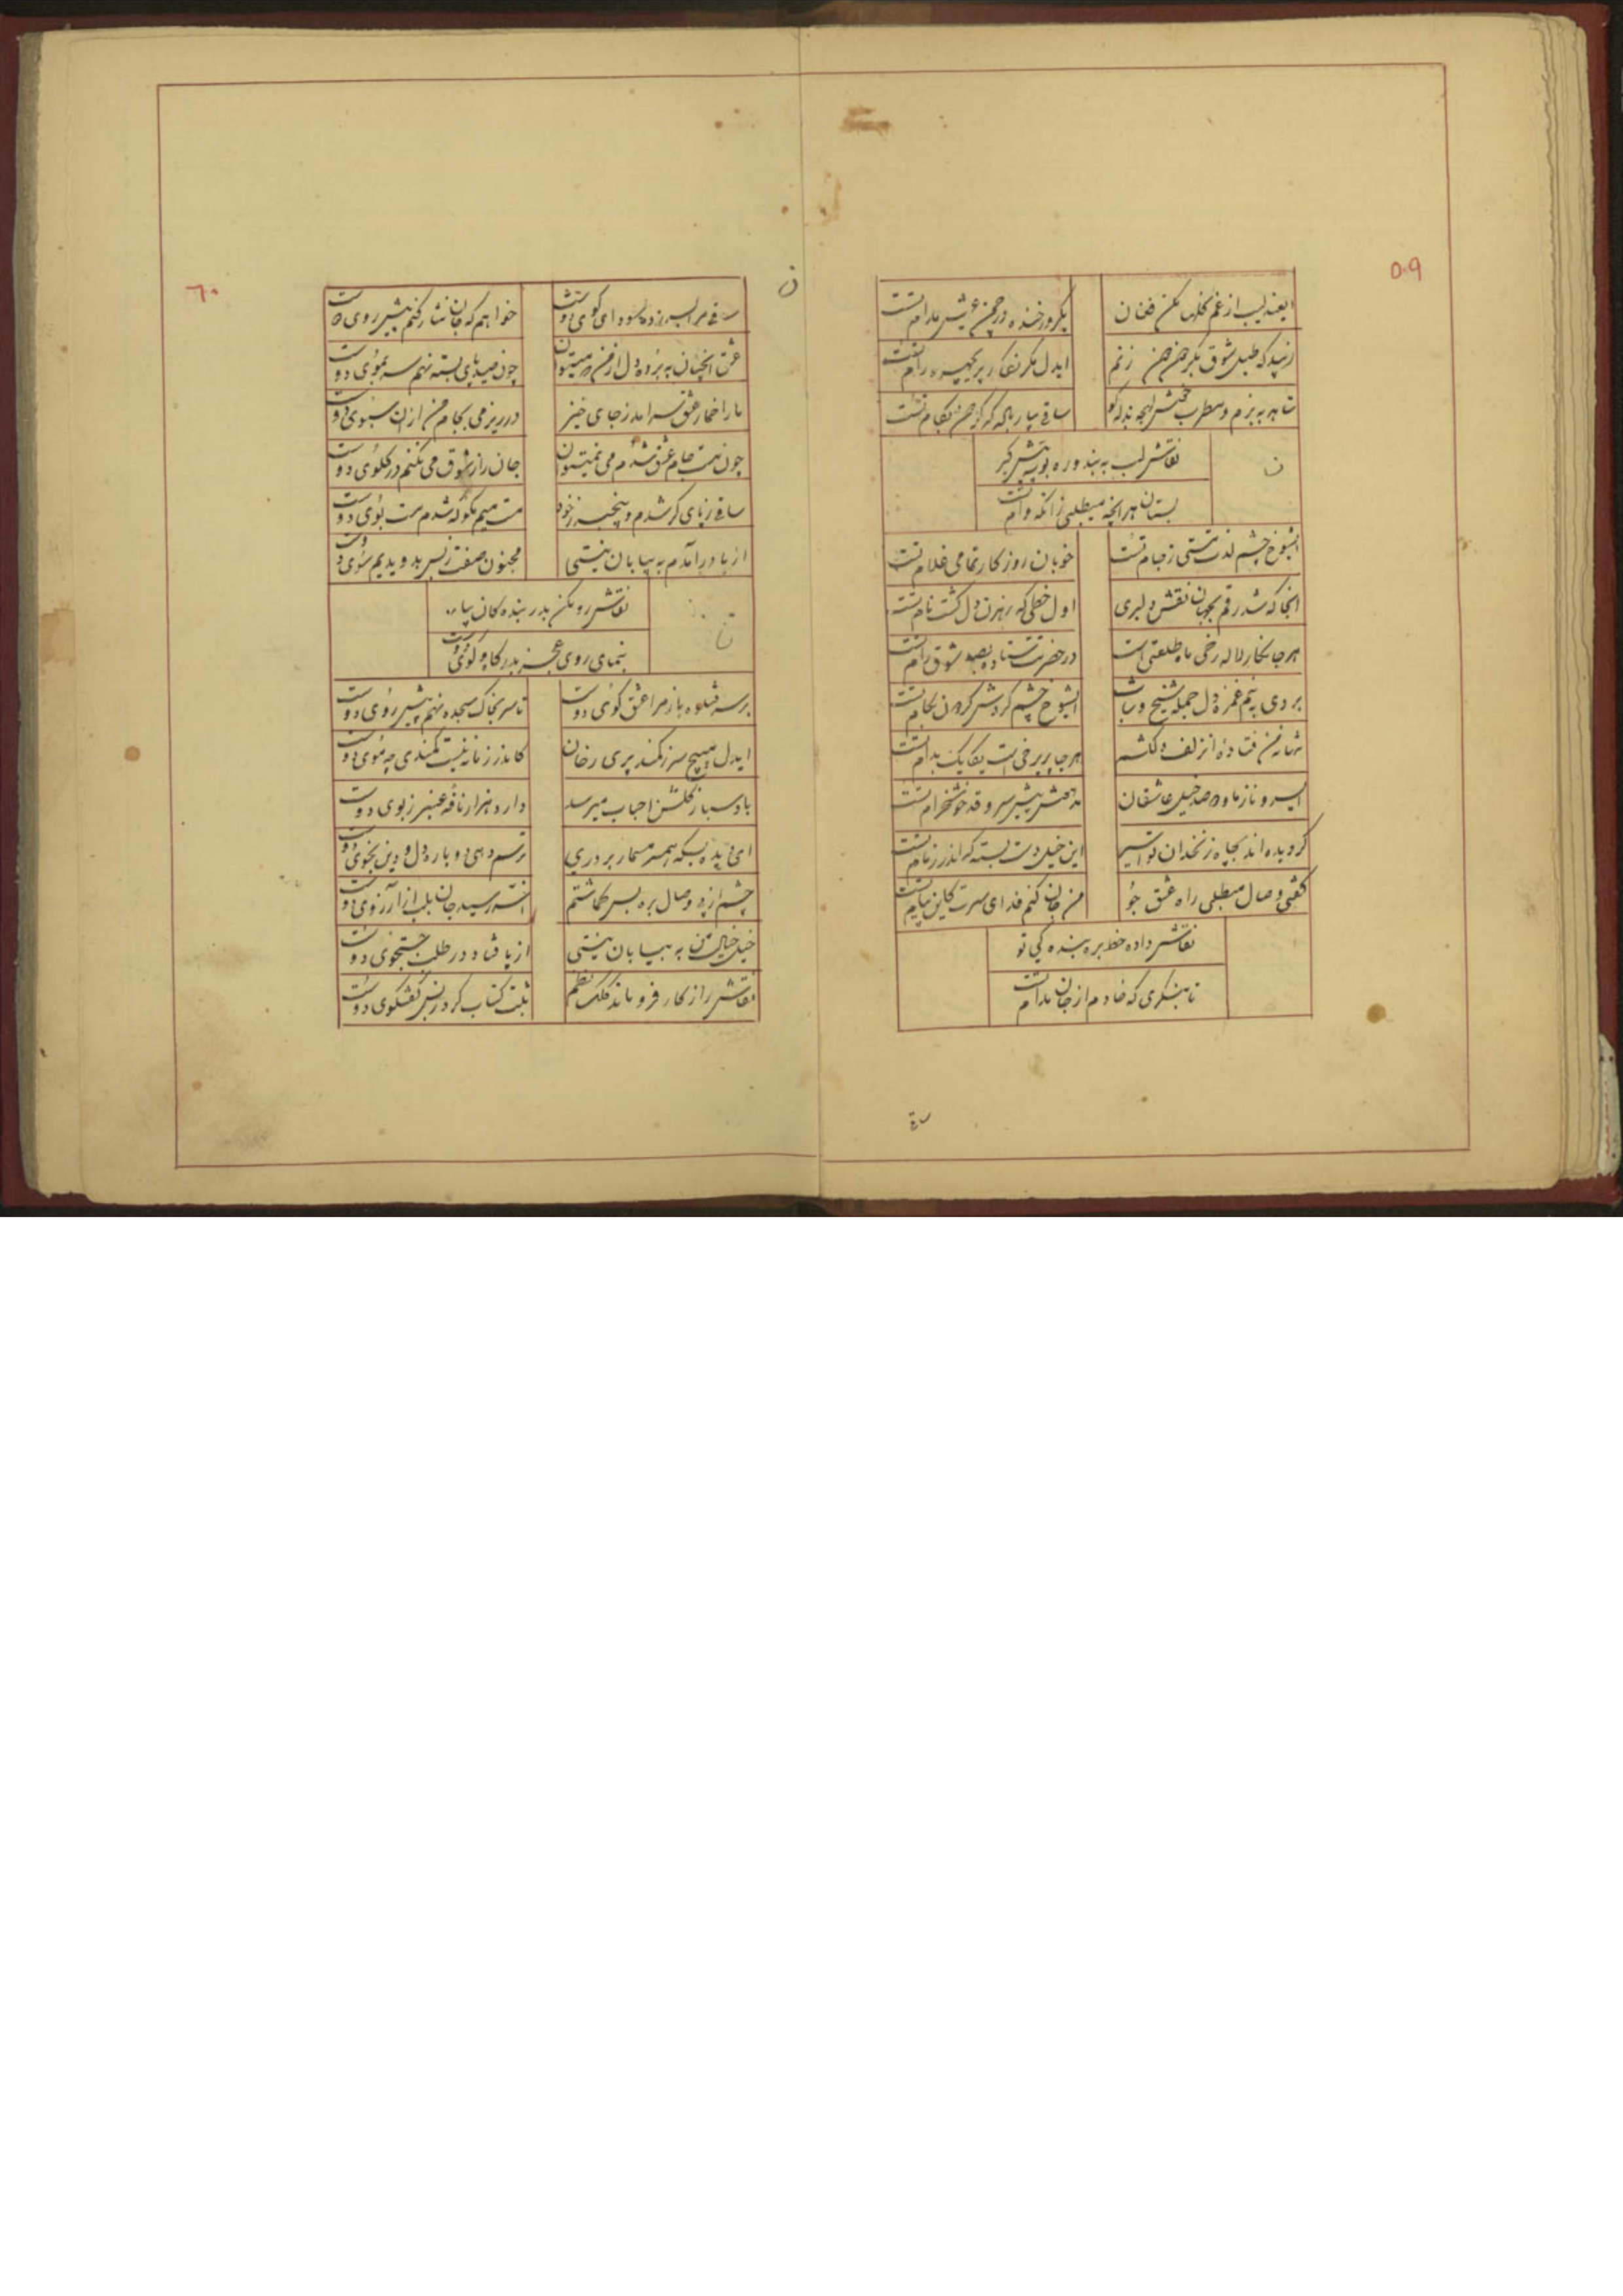 ۵۰۹
ایعندلیب از غم گلها مکن فغان
یکروز خنده در چمن عیش مدام نیست
زیبد که طبل شوق بگیر من زنم
ایدل مگر نگار پریچهره رام تست
شاهد به بزم و مطرب
ساقی بیار باده که بکام تست
ن
نقاش لب به بند و ره پیش گیر
بستان هر انچه میطلبی زانکه وام تست
ایشوخ چشم لذت مستی ز جام تست
خوبان روزکار تمامی غلام تست
انجا که شد رقم بجهان نقش دلبری
اول خطی که رهزن دل گشت نام تست
هر جا نگار لاله رخی ماه طلعتی است
در حضرتت ستاده بصد شوق رام تست
بردی به نیم غمزه دل جمله شیخ و شاب
ایشوخ چشم گردش گردون بکام تست
تنها نه من فتاده از زلف دلکشت
هر جا پریرخی است یکایک بدام تست
ای سرو ناز ماو صد خیل عاشقان
پیش سرو قد خوشخرام تست
گردیده اند بچاه زنخدان تو اسیر
این خیل دست بسته که اندر زمام تست
گفتی وصال میطلبی راه عشق جو
من جان کنم فدای سرت کاین پیام تست
نقاش داده خط بره بندگی تو
تا بنگری که خادم از جان مدام تست
ساقی
۶۰
ن
ساقی مرا بسر زده سودای کوی دوست
خواهم که جان نثار کنم پیش روی دوست
عشق انچنان به برده دل از من
چون صید پای بسته نهم سر بموی دوست
ما را خمار عشق سر امد ز جای خیز
در ریز می بجام من از ان سبوی دوست
چون مست جام عشق شدم می
جان را ز شوق می فکنم در گلوی دوست
ساقی ز پای گر شدم و بیخبر ز خود
مستیم مگو که شدم مست بوی دوست
از پا در آمدم به بیابان نیستی
مجنون صفت ز بس بدویدیم سوی دوست
نقاش رو مکن بدر بنده کان
بنمای روی عجز بدرگاه کوی دوست
بر سر فتاده باز مرا عشق کوی دوست
تا سر بخاک سجده نهم پیش روی دوست
ایدل مپیچ سر ز کمند پری رخان
کاندر زمانه نیست کمندی چه موی دوست
باد سبا ز گلشن احباب میرسد
دارد هزار نافه عنبر ز بوی دوست
ای دیده بسکه همسر مسمار بر دری
ترسم دهی دوباره دل و دین بخوی دوست
چشم از پی وصال بره بس گماشتم
اخر رسید جان بلب از آرزوی دوست
خیل خیال من به بیابان نیستی
از پا فتاد در طلب جستجوی دوست
نقاش را ز کار فرو ماند کلک نظم
ثبت کتاب کرد ز بس گفتگوی دوست